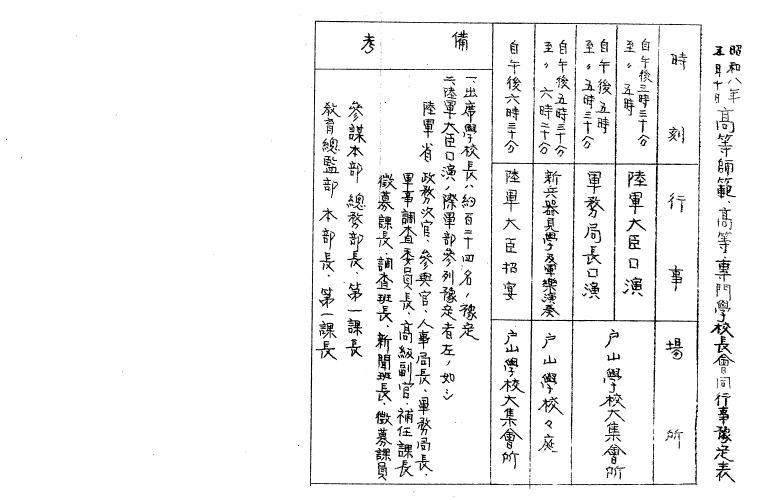 昭和八年
五月十日
高等師範、高等、專門學校長會同行事豫定表
時刻
行事
場所
自午後三時三十分
至〃五時
陸軍大臣口演
自午後五時
至〃五時三十分
軍務局長口演
戸山學校大集會所
自午後五時三十分
至〃六時三十分
新兵器見學及軍樂演奏
戸山學校々庭
自午後六時三十分
陸軍大臣招宴
戸山學校大集會所
備考
一、出席學校長ハ約百二十四名ノ豫定
二、陸軍大臣口演ノ際軍部參列豫定者左ノ如シ
陸軍省 政務次官、參與官、人事局長、軍務局長、
軍事調査委員長、高級副官、補任課長
徴募課長、調査班長、新聞班長、徴募課員
參謀本部 總務部長、第一課長
教育總監部 本部長、第一課長